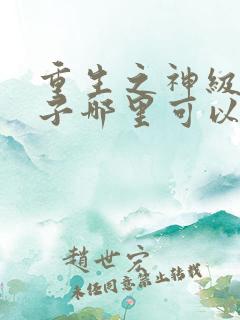 重生之神级
子哪里可以
趙世宏
未经同意禁止转载